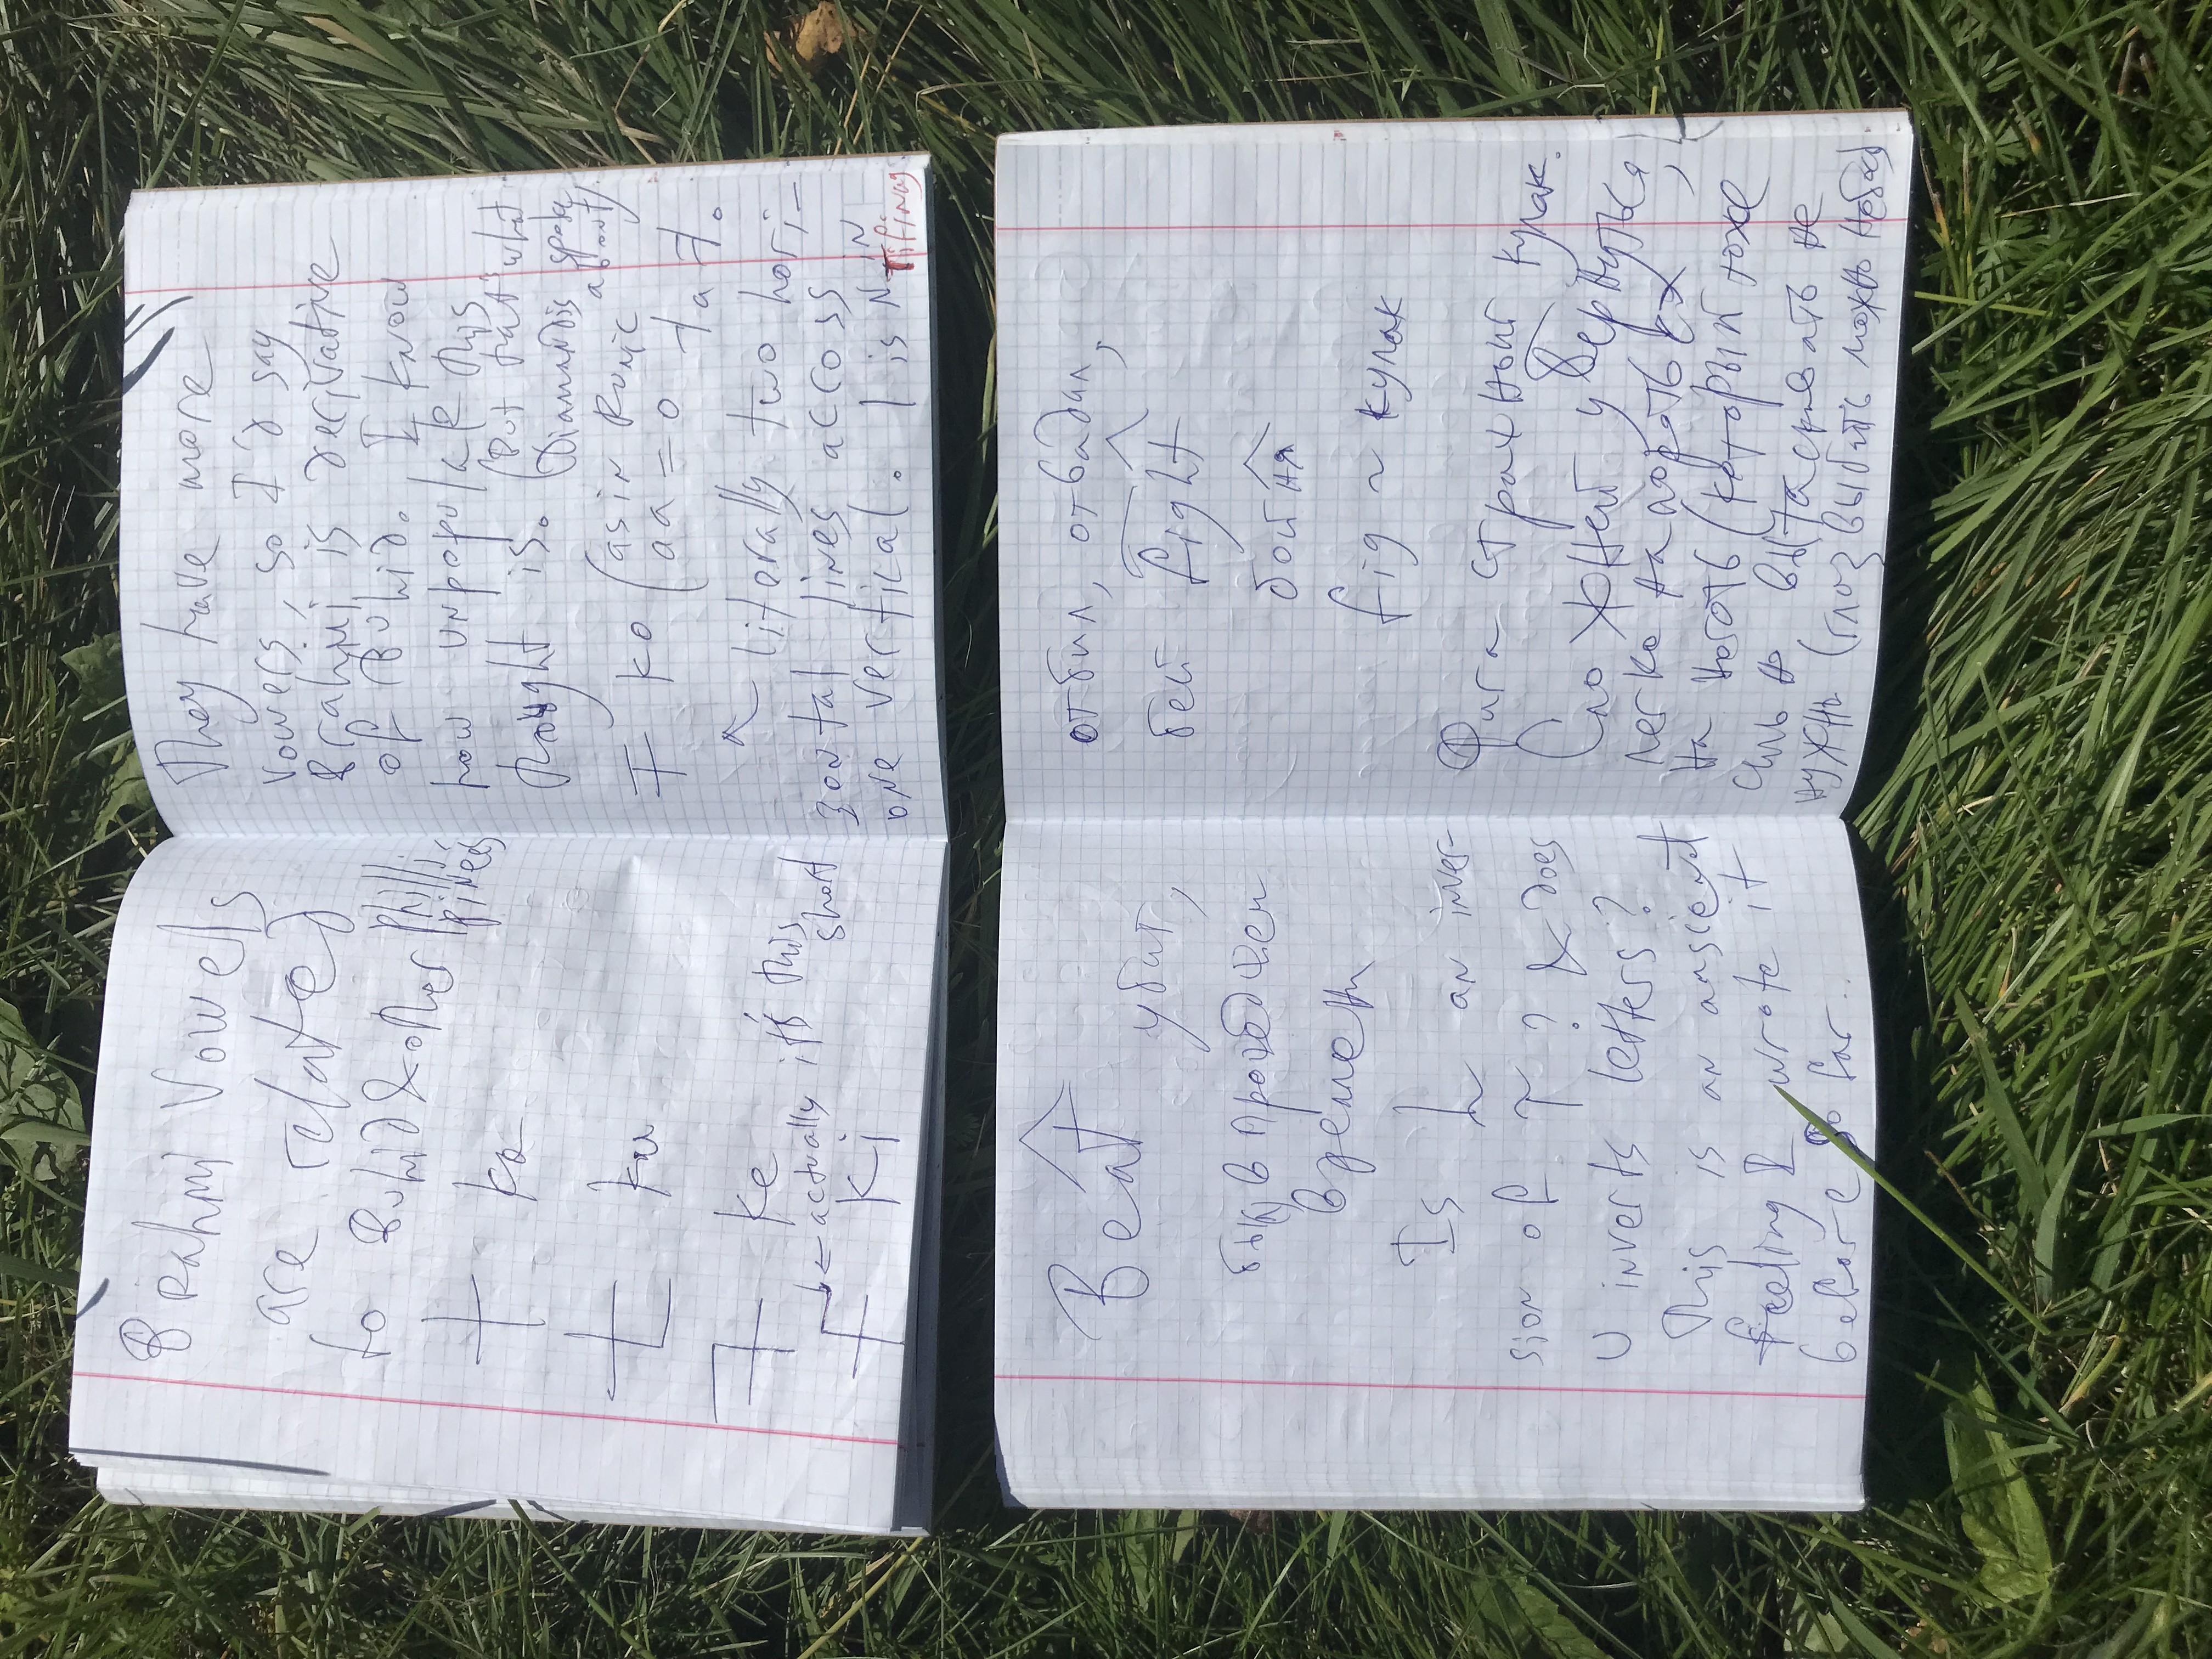 Brahmi Vowels
are related
to Buhid & other Philli,
pinees
ka
ku
ke
← actually it's this
short
ki
They have more
vowers, so I'd say
Brahmi is derivative
of Buhid. I know
how unpopular this
thought is. (But that's what
Diamandis spoke
about)
ko (as in Runic
aa = o
literally two hori-
zontal lines across
one vertical. | is N in
Tifinag
Beat
убит,
был, в прошедшем
времени
Is h an inver-
sion of T? & does
U inverts letters?
This is an ansient
feeling I wrote it
before so far.
отбил, отвадил,
бей fight
бойня
fig ~ кулак
Фига страшный кулак.
Сложней увернуться,
легко напороться
на ноготь (который тоже
сильно вытаскивать не
нужно (глаз выбить можно